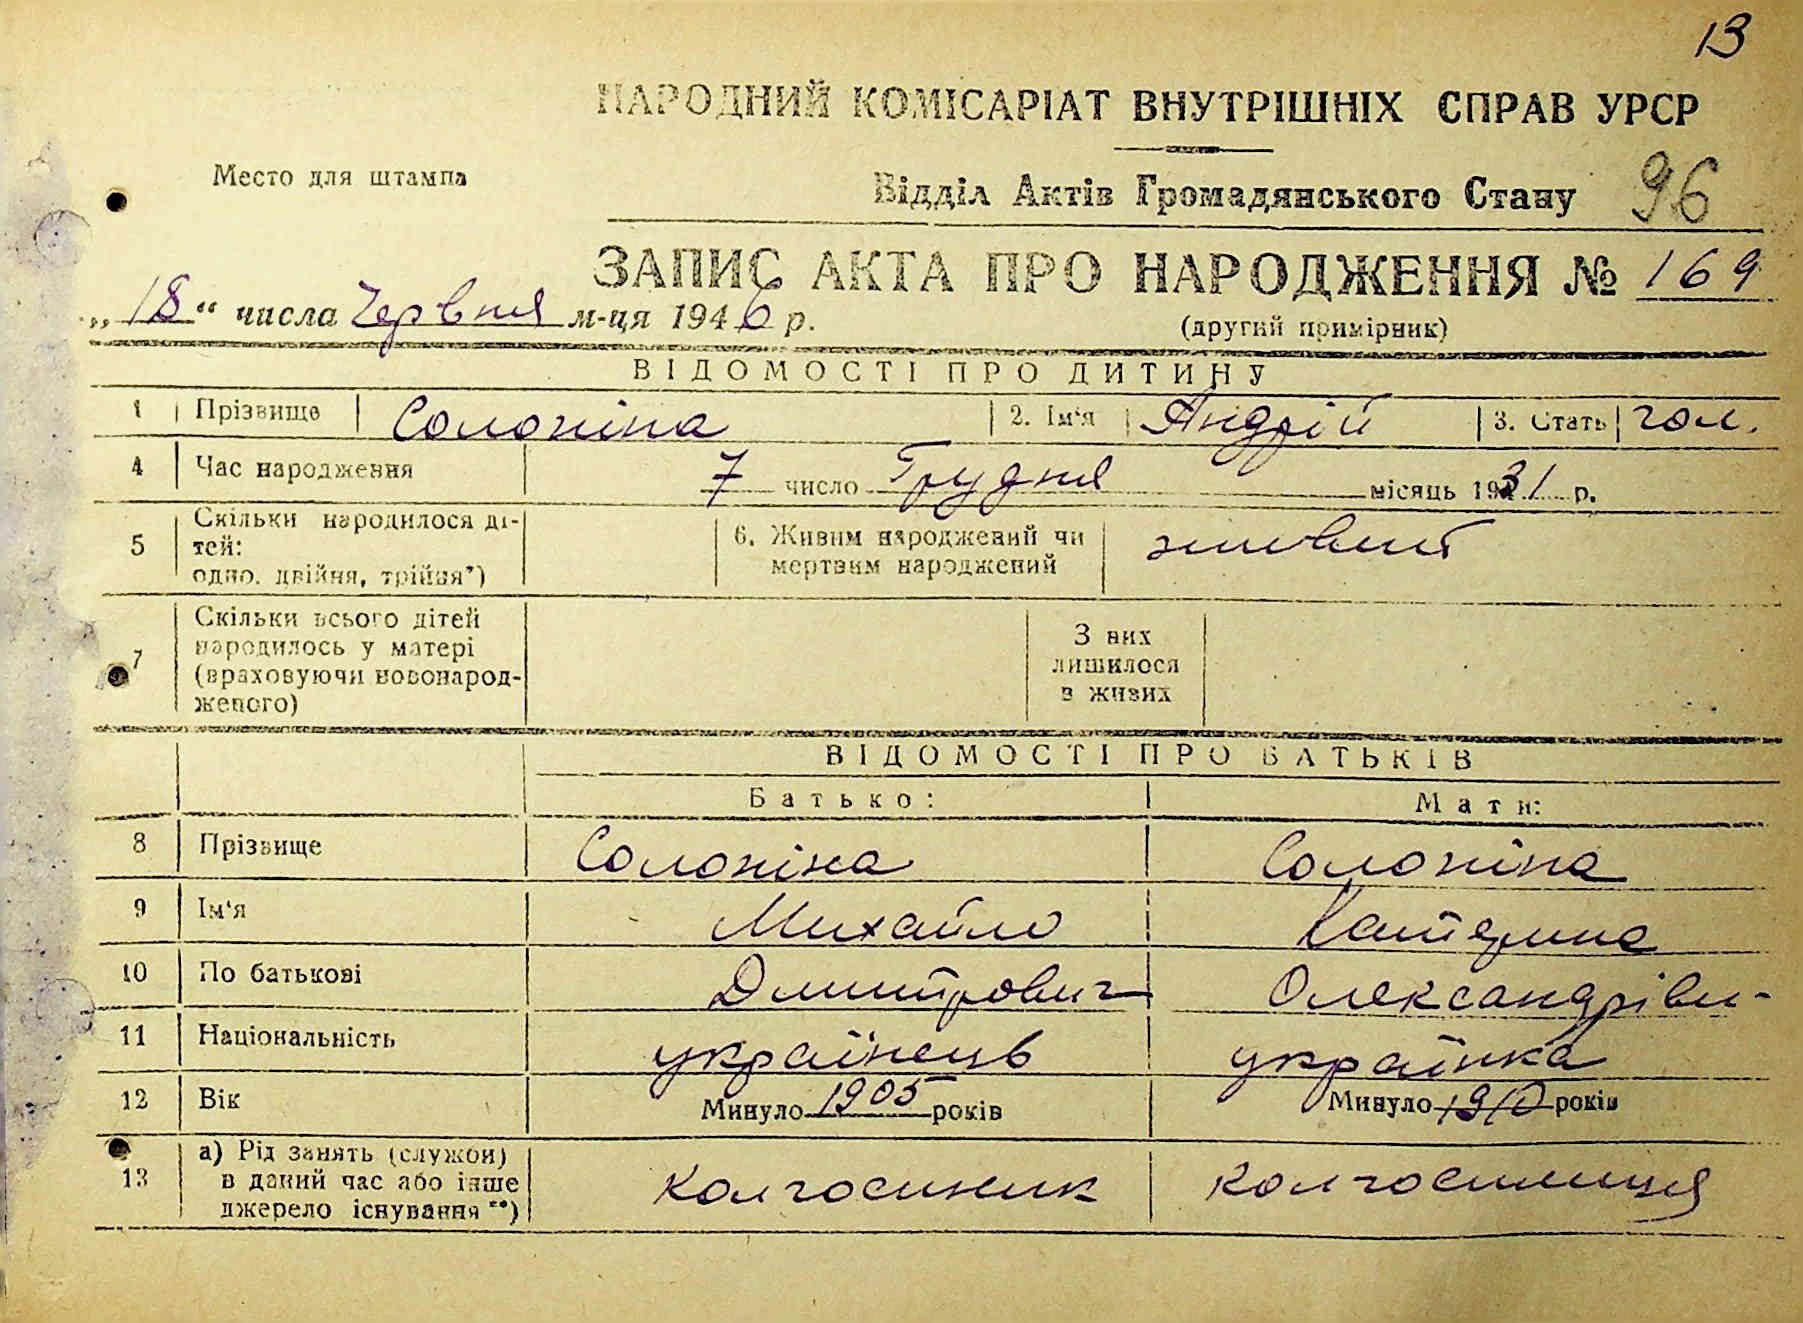 13
НАРОДНИЙ КОМІСАРІАТ ВНУТРІШНІХ СПРАВ УРСР
Место для штампа
Відділ Актів Громадянського Стану 96
ЗАПИС АКТА ПРО НАРОДЖЕННЯ № 169
„18“ числа Червня м-ця 1946 р.
(другий примірник)
ВІДОМОСТІ ПРО ДИТИНУ
1 Прізвище Солоніна 2. Ім‘я Андрій 3. Стать чол.
4 Час народження 7 число Грудня місяць 1931 р.
5 Скільки народилося ді-
тей:
одно, двійня, трійня*)
6. Живим народжений чи
мертвим народжений
живий
7 Скільки всього дітей
народилось у матері
(враховуючи новонарод-
женого)
З них
лишилося
в живих
ВІДОМОСТІ ПРО БАТЬКІВ
Батько: Мати:
8 Прізвище Солоніна Солоніна
9 Ім‘я Михайло Катерина
10 По батькові Дмитрович Олександрівн-
11 Національність українець українка
12 Вік Минуло 1905 років Минуло 1910 років
13 а) Рід занять (служби)
в даний час або інше
джерело існування **)
колгоспник колгоспниця